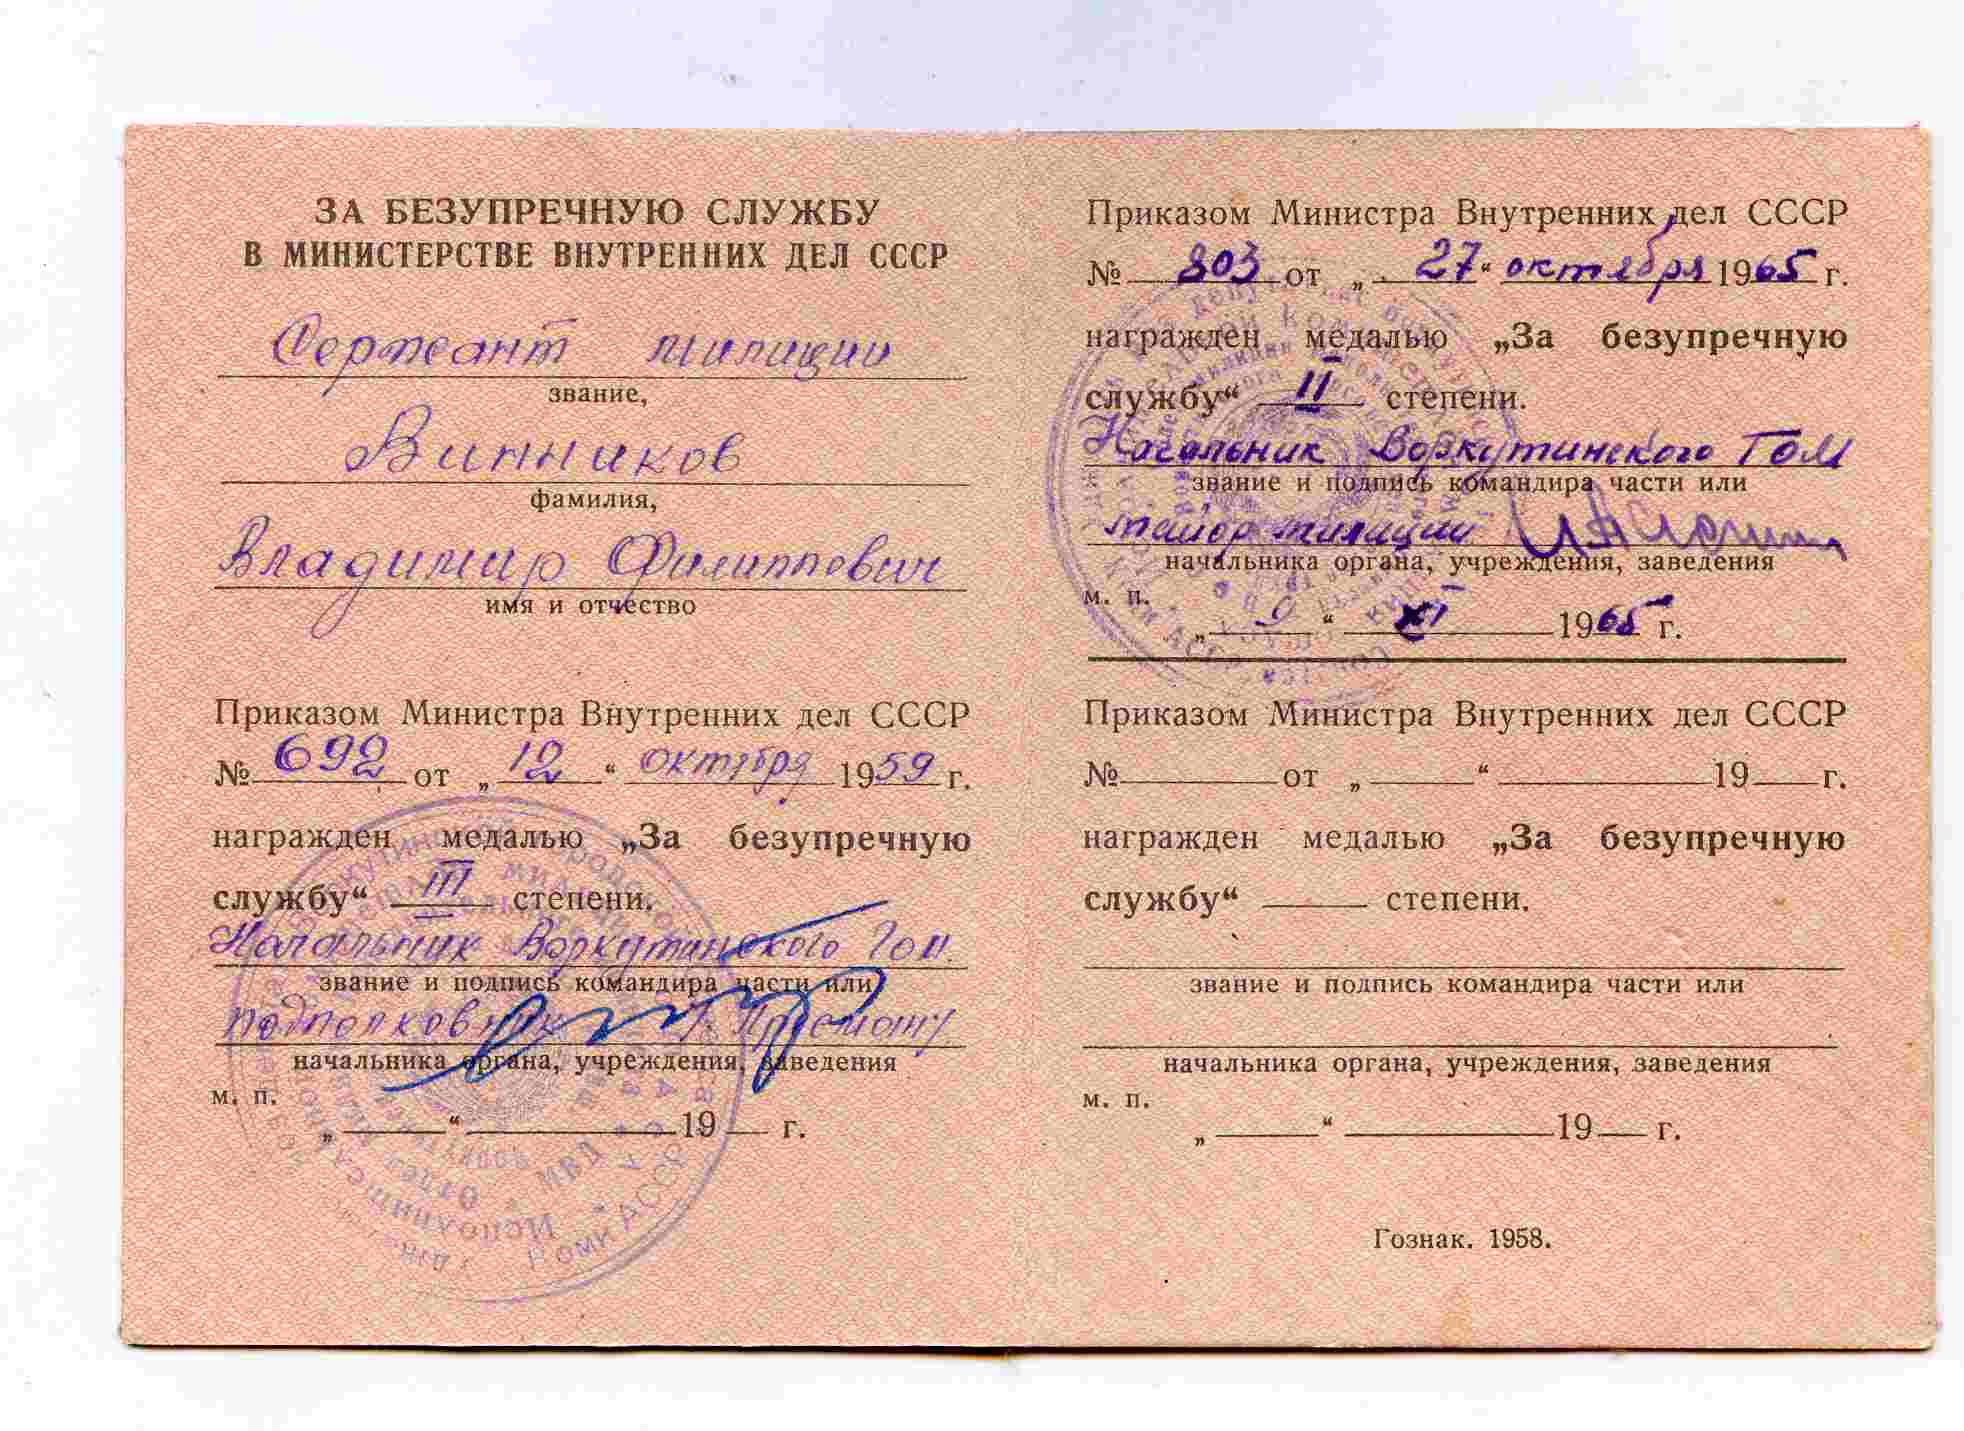 ЗА БЕЗУПРЕЧНУЮ СЛУЖБУ
В МИНИСТЕРСТВЕ ВНУТРЕННИХ ДЕЛ СССР
Сержант милиции
звание,
Винников
фамилия,
Владимир Филиппович
имя и отчество
Приказом Министра Внутренних дел СССР
№ 692 от „ 12 “ октября 1959 г.
награжден медалью „За безупречную
службу“ III степени.
Начальник Воркутинского Гом.
звание и подпись командира части или
подполковник
начальника органа, учреждения, заведения
м. п.
„ “ 19 г.
Приказом Министра Внутренних дел СССР
№ 803 от „ 27 “ октября 1965 г.
награжден медалью „За безупречную
службу“ II степени.
Начальник Воркутинского ГОМ
звание и подпись командира части или
майор милиции
начальника органа, учреждения, заведения
м. п.
„ 9 “ XI 1965 г.
Приказом Министра Внутренних дел СССР
№ от „ “ 19 г.
награжден медалью „За безупречную
службу“ степени.
звание и подпись командира части или
начальника органа, учреждения, заведения
м. п.
„ “ 19 г.
Гознак. 1958.